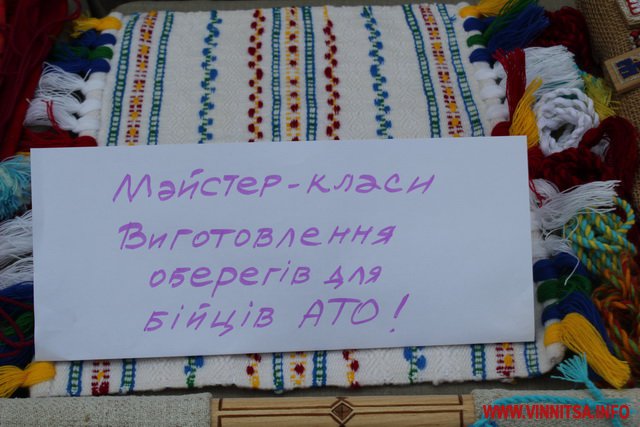 Майстер-класи
Виготовлення
оберегів для
бійців АТО!
WWW.VINNITSA.INFO